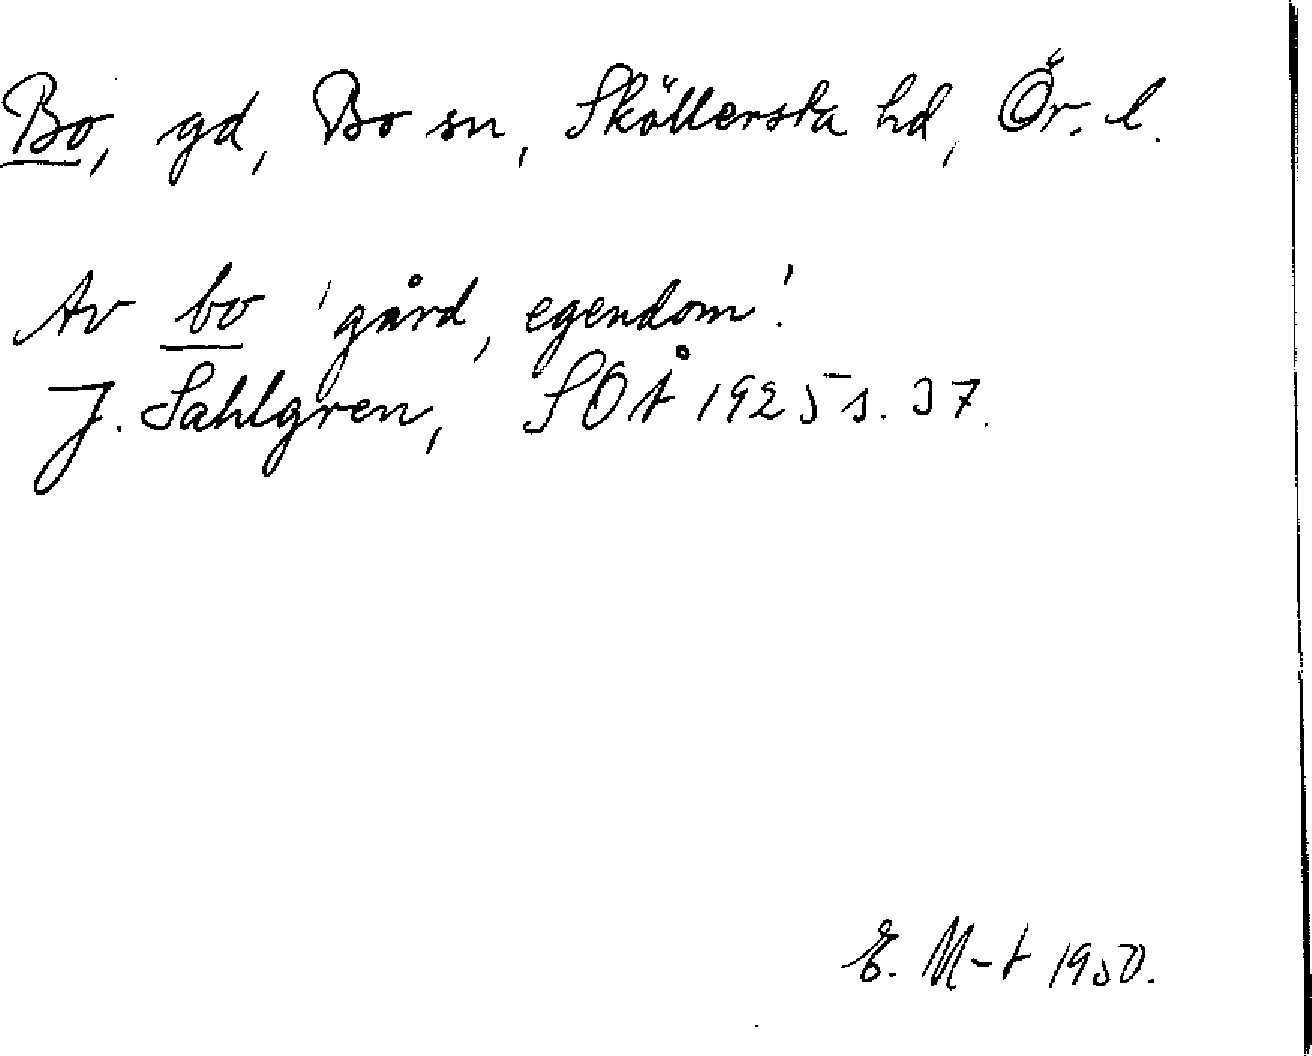 Bo, gd, Bo sn, Sköllersta hd, Ör. l.
Av bo 'gård, egendom'.
J. Sahlgren, SOÅ 1925 s. 37.
E. M-t 1950.